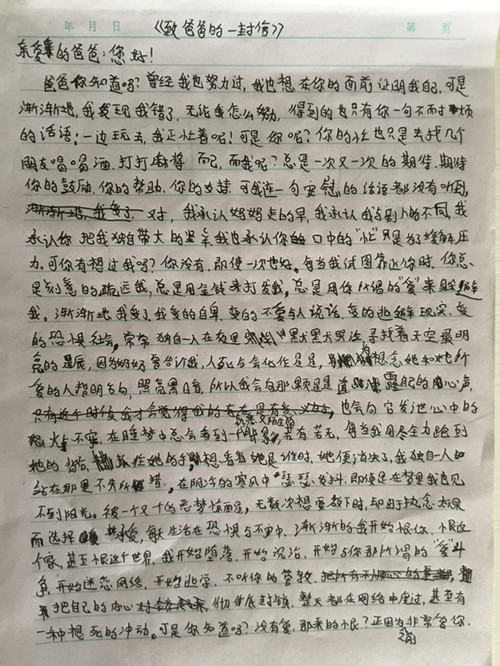 年 月 日 第 页
《致爸爸的一封信》
亲爱的爸爸：您好！
爸爸你知道吗？曾经我也努力过，我也想在你的面前证明我的，可是
渐渐地，我发现我错了，无论我怎么努，得到的也只有你一句不耐烦
的话语：一边玩去，我正忙着呢！可是你呢？你的忙也只是去找几个
朋友喝喝酒，打打麻将而已，而我呢？总是一次又一次的期待，期待
你的鼓励，你的帮助，你的支持，可我连一句安慰的话语都没有听到，
对，我承认妈妈走的早，我承认我与别人的不同，我
承认你把我独自带大的艰辛，我也承认你口中的"忙"只是为了缓解压
力，可你有想过我吗？你没有，即使一次也好，每当我试图靠近你时，你总
是刻意的疏远我，总是用金钱来打发我，总是用你所谓的"爱"来
我，渐渐地我变了，我变的自卑，变的不爱与人说话，变的逃避现实，变
的恐惧社会，常常独自一人在夜里哭泣，寻找着天空最明
亮的星辰，因为妈妈曾告诉我，人死后会化作星星，想念她和她所
爱的人指明方向，照亮黑暗，所以我会向那颗星星露我的心声，
也会向它发泄心中的
火与不安，在睡梦中总会看到一若有若无，每当我用尽全力跑到
她的，想看看她是谁时，她便消失了，我独自一人
站在那里不知所措，在阴冷的寒风中瑟瑟发抖，即使是在梦里我也见
不到阳光，被一个又一个的恶梦惊醒，无数次想要放下时，却由于执念太深
而选择，每天生活在恐惧与不安中，渐渐的我开始恨你，恨这
个家，甚至恨这个世界，我开始堕落，开始沉沦，开始与你那所谓的"爱"斗
争，开始迷恋网络，开始逃学，不听你的管教，
把自己的内心彻彻底底封锁，整天都在网络中度过，甚至有
一种想死的冲动。可是你知道吗？没有爱，那来的恨？正因为非常爱你，